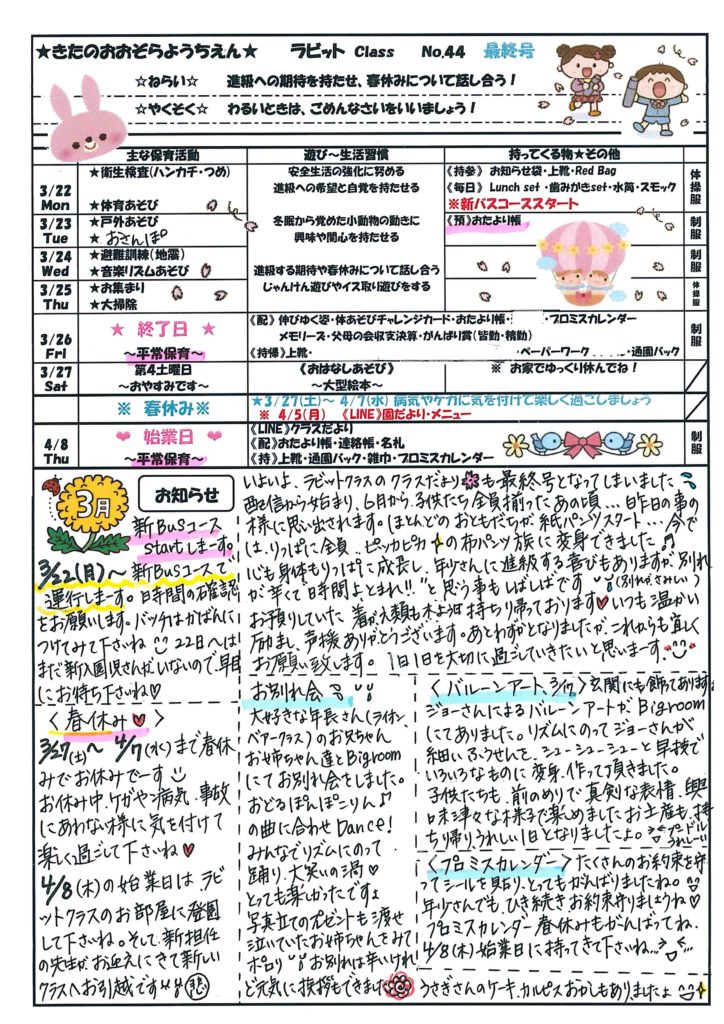 ★きたのおおぞらようちえん★ ラビット Class No.44 最終号
☆ねらい☆ 進級への期待を持たせ、春休みについて話し合う！
☆やくそく☆ わるいときは、ごめんなさいをいいましょう！
主な保育活動 遊び～生活習慣 持ってくる物★その他
3/22 Mon
★衛生検査(ハンカチ・つめ)
★体育あそび
安全生活の強化に努める
進級への希望と自覚を持たせる
《持参》 お知らせ袋・上靴・Red Bag
《毎日》 Lunch set ・歯みがきset・水筒・スモック
※新バスコーススタート
体操服
3/23 Tue
★戸外あそび
★おさんぽ
冬眠から覚めた小動物の動きに
興味や関心を持たせる
《預》おたより帳
制服
3/24 Wed
★避難訓練(地震)
★音楽リズムあそび
進級する期待や春休みについて話し合う
制服
3/25 Thu
★お集まり
★大掃除
じゃんけん遊びやイス取り遊びをする
体操服
3/26 Fri
★ 終了日 ★
～平常保育～
《配》 伸びゆく姿・体あそびチャレンジカード・おたより帳・ ・プロミスカレンダー
メモリーズ・父母の会収支決算・がんばり賞(皆勤・精勤)
《持帰》上靴・ ・ペーパーワーク ・通園バック
制服
3/27 Sat
第4土曜日
～おやすみです～
《おはなしあそび》
～大型絵本～
※ お家でゆっくり休んでね！
※ 春休み※
★3/27(土)～ 4/7(水) 病気やケガに気を付けて楽しく過ごしましょう
※ 4/5(月) 《LINE》園だより・メニュー
4/8 Thu
❤ 始業日 ❤
～平常保育～
《LINE》クラスだより
《配》おたより帳・連絡帳・名札
《持》上靴・通園バック・雑巾・プロミスカレンダー
制服
3月 お知らせ
新Busコース
startしまーす。
3/22(月)～新Busコースで
運行しまーす。日時間の確認
をお願いします。バッチはかばんに
つけてみて下さいね 22日～は
まだ新入園児さんがいないので、早目
にお待ち下さいね♡
いよいよ、ラビットクラスのクラスだよりも最終号となってしまいました
配信から始まり、6月から、子供たち全員揃ったあの頃…昨日の事の
様に思い出されます。ほとんどのおともだちが紙パンツスタート…今で
は、りっぱに全員、ピッカピカの布パンツ族に変身できました♫
心も身体もりっぱに成長し、年少さんに進級する喜びもありますが、別れ
が辛くて "時間よとまれ!!" と思う事もしばしばです (別れがさみしい)
お預りしていた着がえ類も本日持ち帰っております♥いつも温かい
励まし、声援ありがとうございます。あとわずかとなりましたが、これからも宜しく
お願い致します。1日1日を大切に過ごしていきたいと思いまーす。
〈春休み♥〉
3/27(土)～4/7(水)まで春休
みでお休みでーす
お休み中、ケガや病気、事故
にあわない様に気を付けて
楽しく過ごして下さいね♥
4/8(木)の始業日は、ラビ
ットクラスのお部屋に登園
して下さいね。そして、新担任
の先生がお迎えにきて新しい
クラスへお引越です 悲
お別れ会
大好きな年長さん(ライオン
ベアークラス)のお兄ちゃん
お姉ちゃん達とBigroom
にてお別れ会をしました。
おどるぽんぽこりん♪
の曲に合わせDance!
みんなでリズムにのって
踊り、大笑いの渦♡
とっても楽しかったですょ
写真立てのプレゼントも渡せ
泣いていたお姉ちゃんをみて
ポロリ お別れは辛いけれ
ど元気に挨拶もできました うさぎさんのケーキ、カルピスおかしもありましたょ
〈バルーンアート、3/17〉玄関にも飾ってあります
ジョーさんによるバルーンアートがBigroom
にてありました。リズムにのってジョーさんが
細いふうせんを、シューシューシューと早技で
いろいろなものに変身、作って頂きました。
子供たちも、前のめりで真剣な表情、興
味津々な様子で楽しめましたお土産も、持
ち帰り、うれしい1日となりましたよ。
〈プロミスカレンダー〉たくさんのお約束を守
ってシールを貼り、とってもがんばりましたね。
年少さんでも、ひき続きお約束守りましょうね♡
プロミスカレンダー春休みもがんばってね。
4/8(木)始業日に持ってきて下さいね…